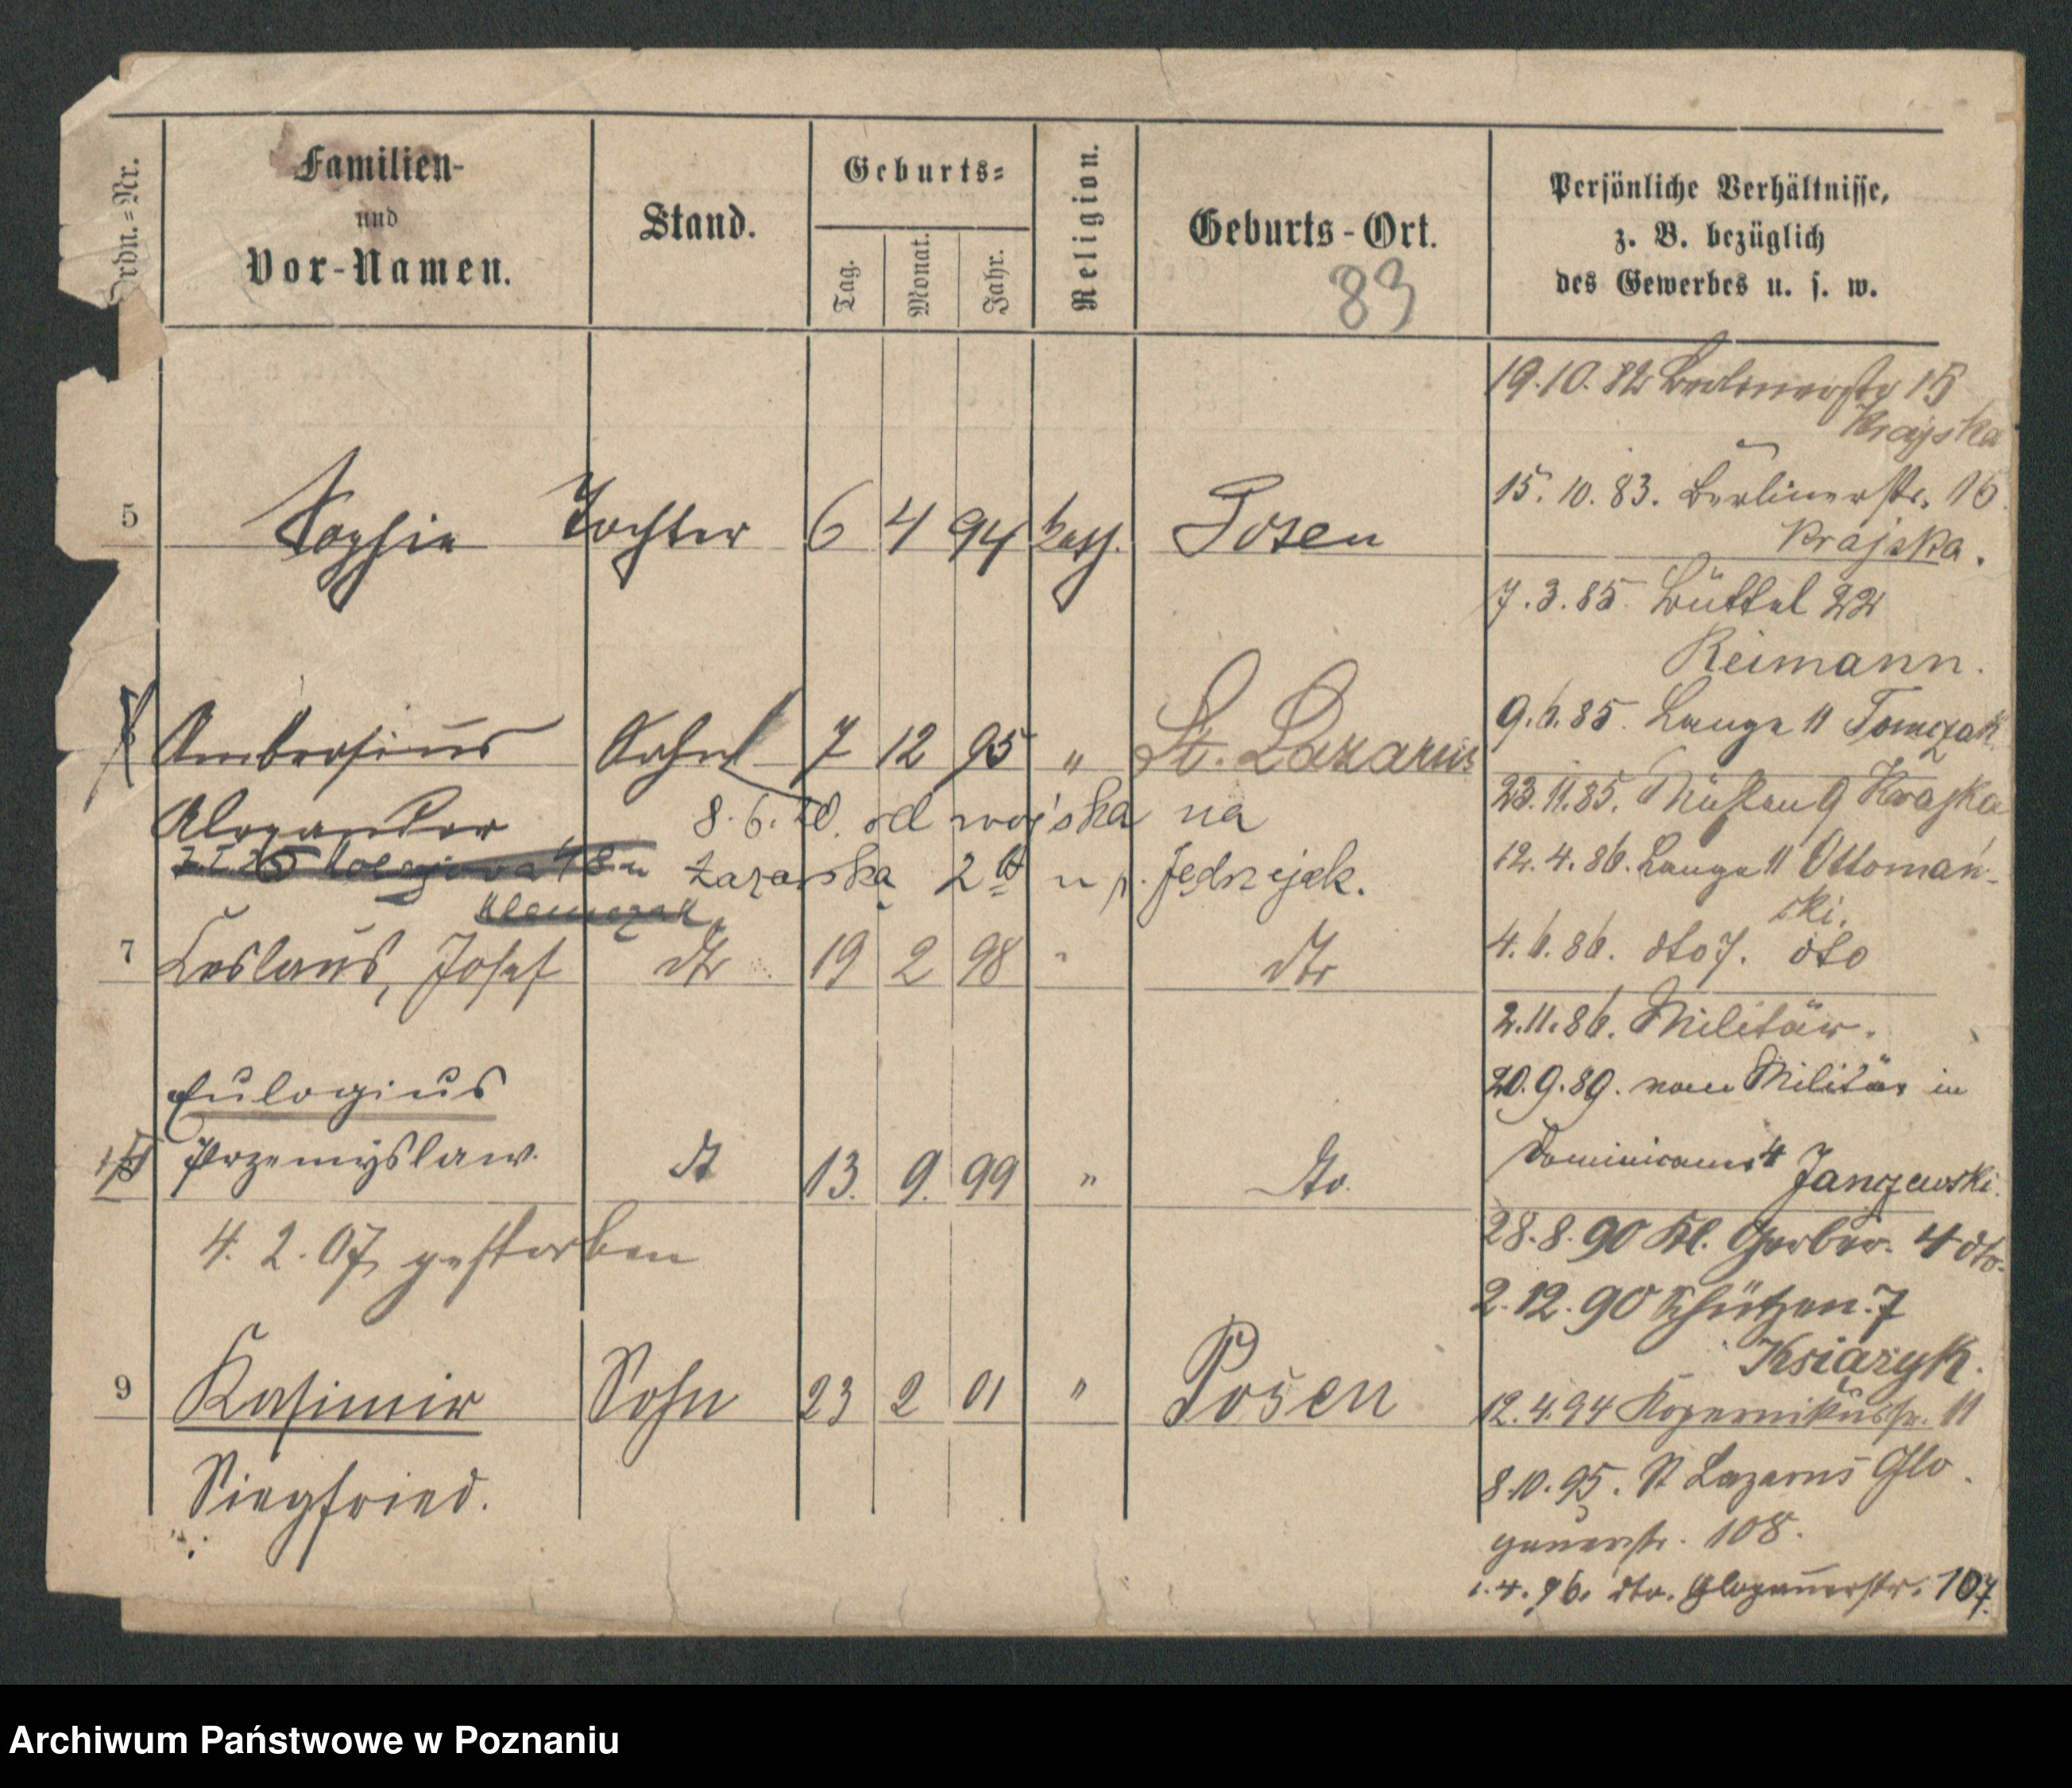 Ordn.=Nr.
Familien-
und
Vor-Namen.
Stand.
Geburts=
Tag.
Monat.
Jahr.
Religion.
Geburts-Ort.
83
Persönliche Verhältnisse,
z. B. bezüglich
des Gewerbes u. s. w.
19.10.82 Berlinerstr 15
Krajska
15.10.83. Berlinerstr. 16
Krajska.
5 Sophie Tochter 6 4 94 kath. Posen
7.3.85. Büttel 22
Reimann.
9.6.85. Lange 11 Tomczak
Ambrosius Sohn 7 12 95 " St. Lazarus
23.11.85. 9 Krajska
Alexander
8.6.20. od wojska na
Łazarska 2 u p. Jędrzejek.
12.4.86. Lange 11 Ottomań-
ski.
4.6.86. dto 7. dto
7 Ceslaus, Josef dto 19 2 98 " dto
2.11.86. Militär.
20.9.89. vom Militär in
Dominicaner 4 Janczewski.
Eulogius
Przemyslaw. dt 13. 9. 99 " dto.
4. 2. 07 gestorben
28.8.90 Kl. Gerber. 4 dto.
2.12.90 Schützen. 7
Ksiązyk.
9 Kasimir Sohn 23 2 01 " Posen
Siegfried.
12.4.94 Kopernikusstr. 11
8.10.95. St Lazarus Glo
gauerstr. 108.
1.4.96. dto. Glogauerstr. 107.
Archiwum Państwowe w Poznaniu